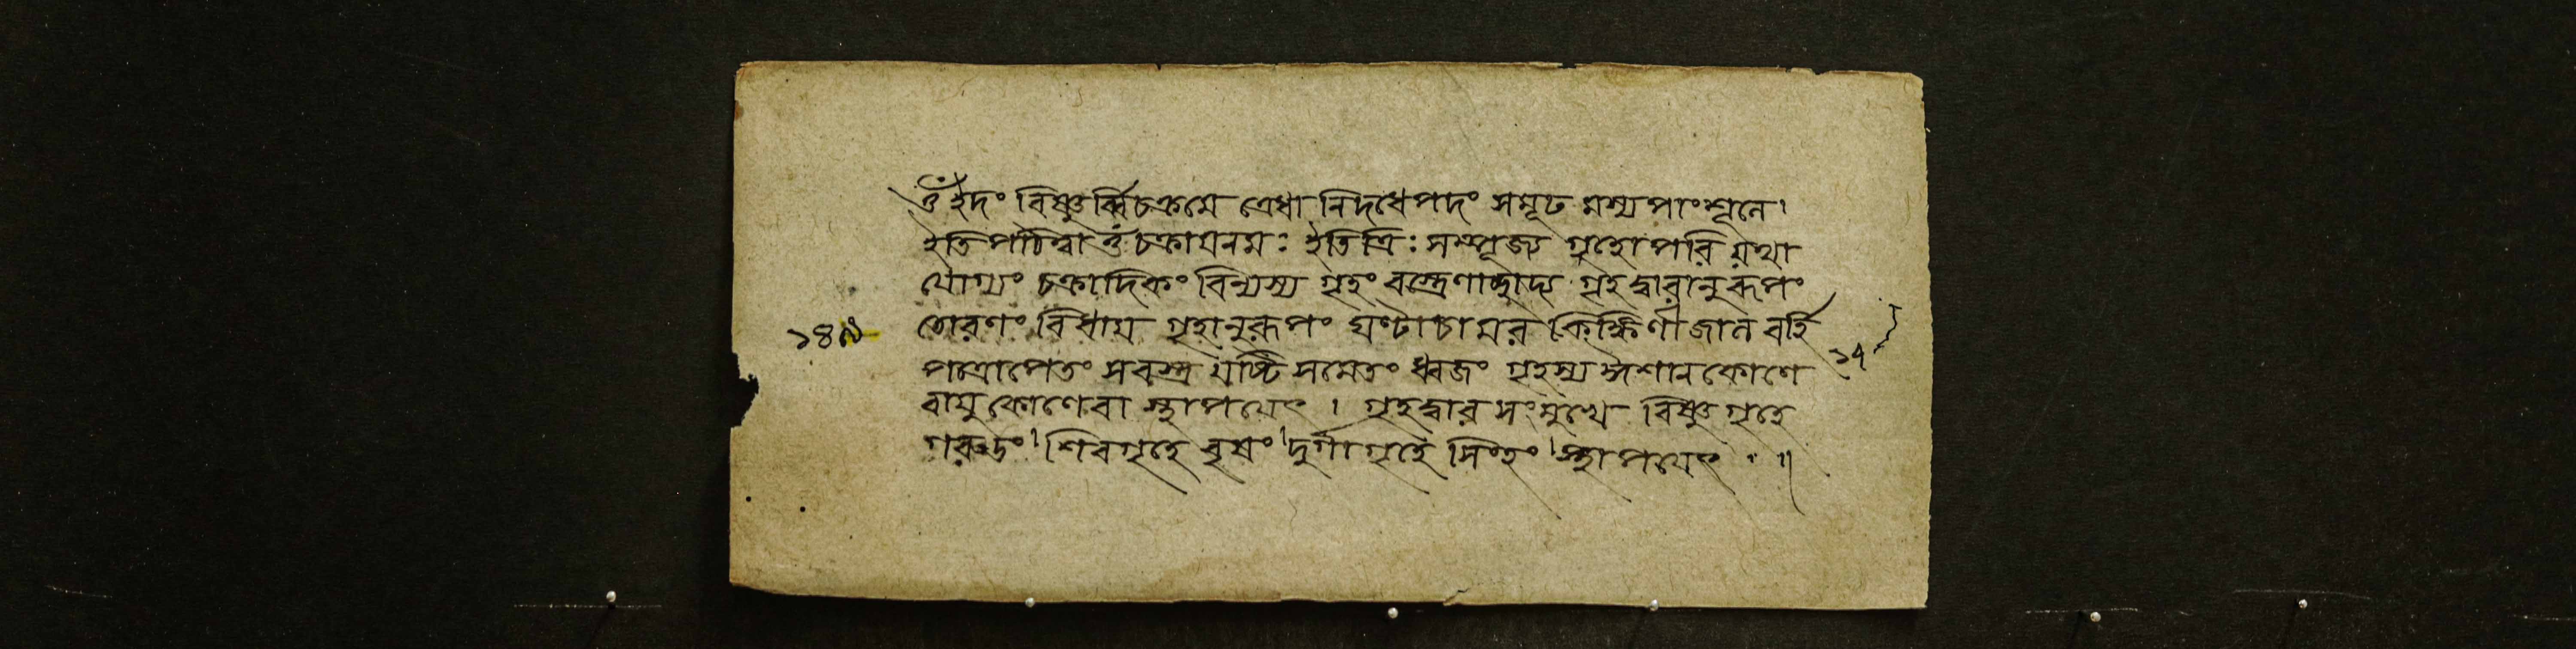 ওঁ ইদং বিষ্ণুর্ব্বিচক্রমে ত্রেধা নিদধে পদং সমূঢ মস্য পাংশুলে।
ইতি পঠিত্বা ওঁ চক্রায় নমঃ ইতি ত্রিঃ সম্পূজ্য গৃহোপরি যথা
যোগ্যং চক্রাদিকং বিন্যস্য গৃহং বস্ত্রেণাচ্ছাদ্য গৃহদ্বারানুরূপং
১৪৯ তোরণং বিধায় গৃহানুরূপং ঘণ্টাচামর কিঙ্কিণীজাল বর্হি ১৭
পত্রোপেতং সবস্ত্র যষ্টি সমেতং ধ্বজং গৃহস্য ঈশানকোণে
বায়ু কোণে বা স্থাপয়েৎ । গৃহদ্বার সংমুখে বিষ্ণু গৃহে
গরুডং। শিবগৃহে বৃষং। দুর্গাগৃহে সিংহং। স্থাপয়েৎ ॥